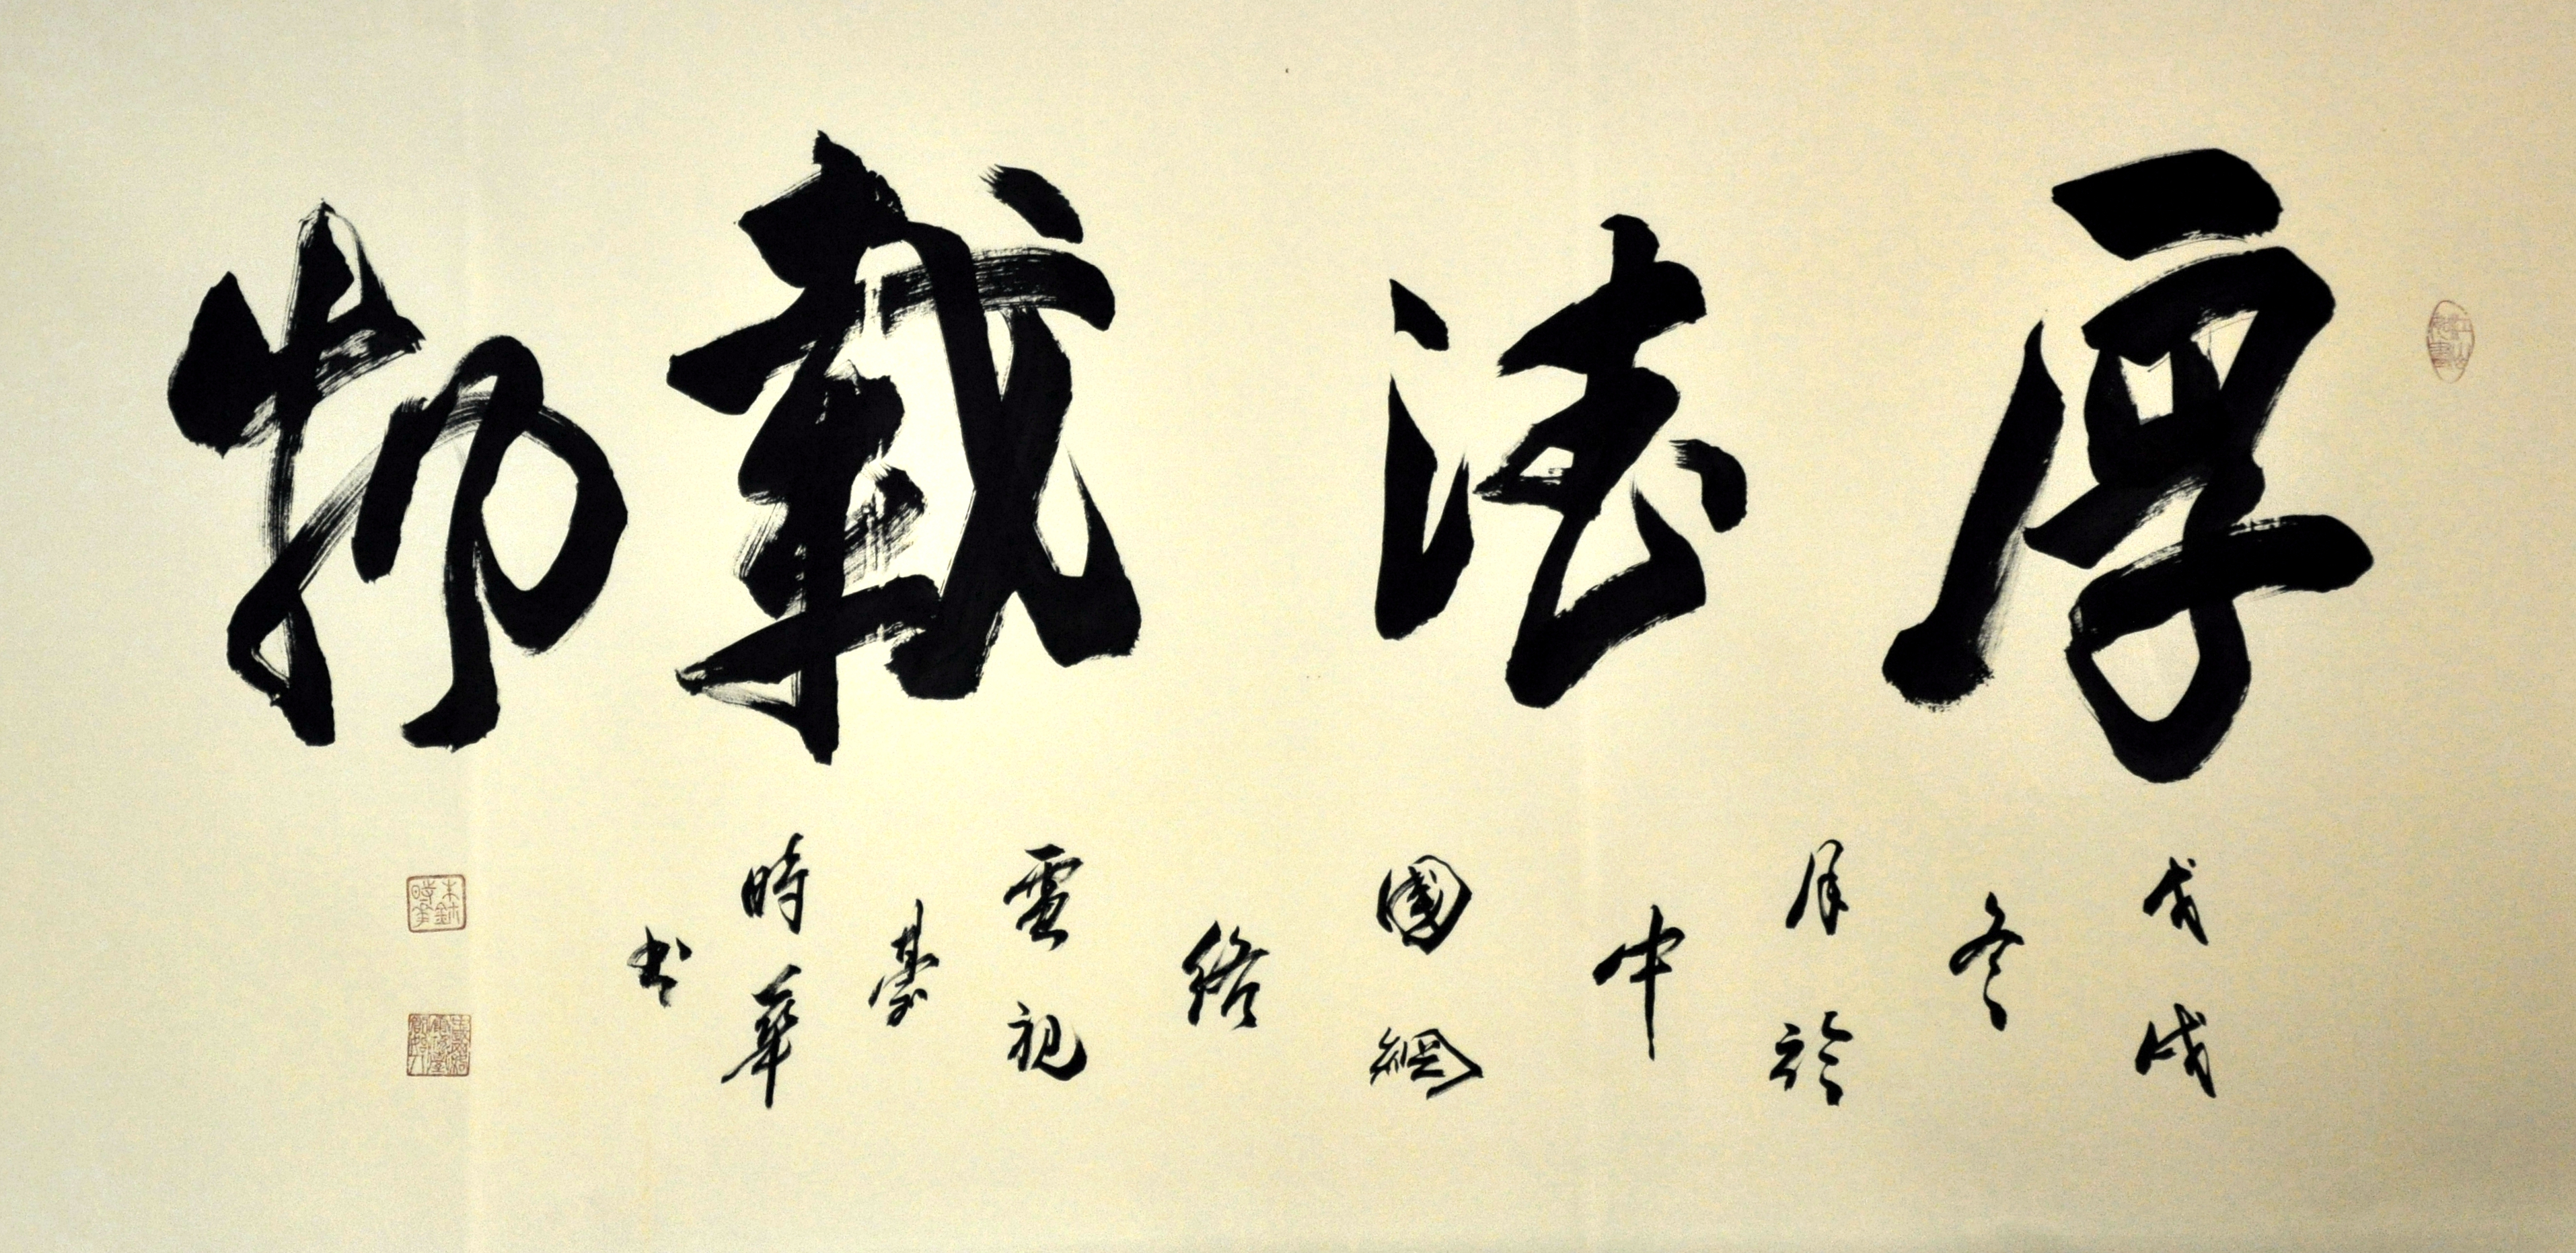 厚德載物
戊戌冬月於中國網絡電視臺時華书